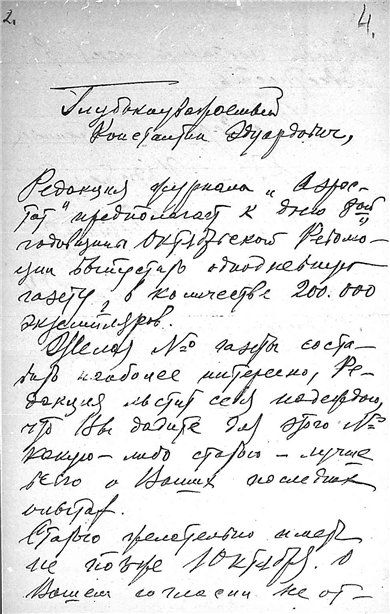 2.
4.
Глубокоуважаемый
Константин Эдуардович,
Редакция журнала „Аэрос-
тат" предполагает к дню
годовщины Октябрьской Револю-
ции выпустить однодневную
газету, в количестве 200.000
экземпляров.
Желая № газеты соста-
вить наиболее интересно, Ре-
дакция льстит себя надеждою,
что Вы дадите для этого №
какую-либо статью – лучше
всего о Ваших последних
опытах.
Статью желательно иметь
не позже 1 Октября. О
Вашем согласии не от-